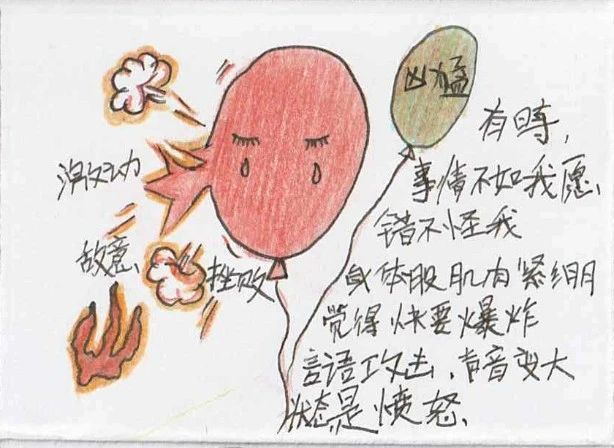 凶猛
激动
敌意
挫败
有时,
事情不如我愿、
错不怪我
身体股肌肉紧绷
觉得快要爆炸
言语攻击、声音变大
状态是愤怒、